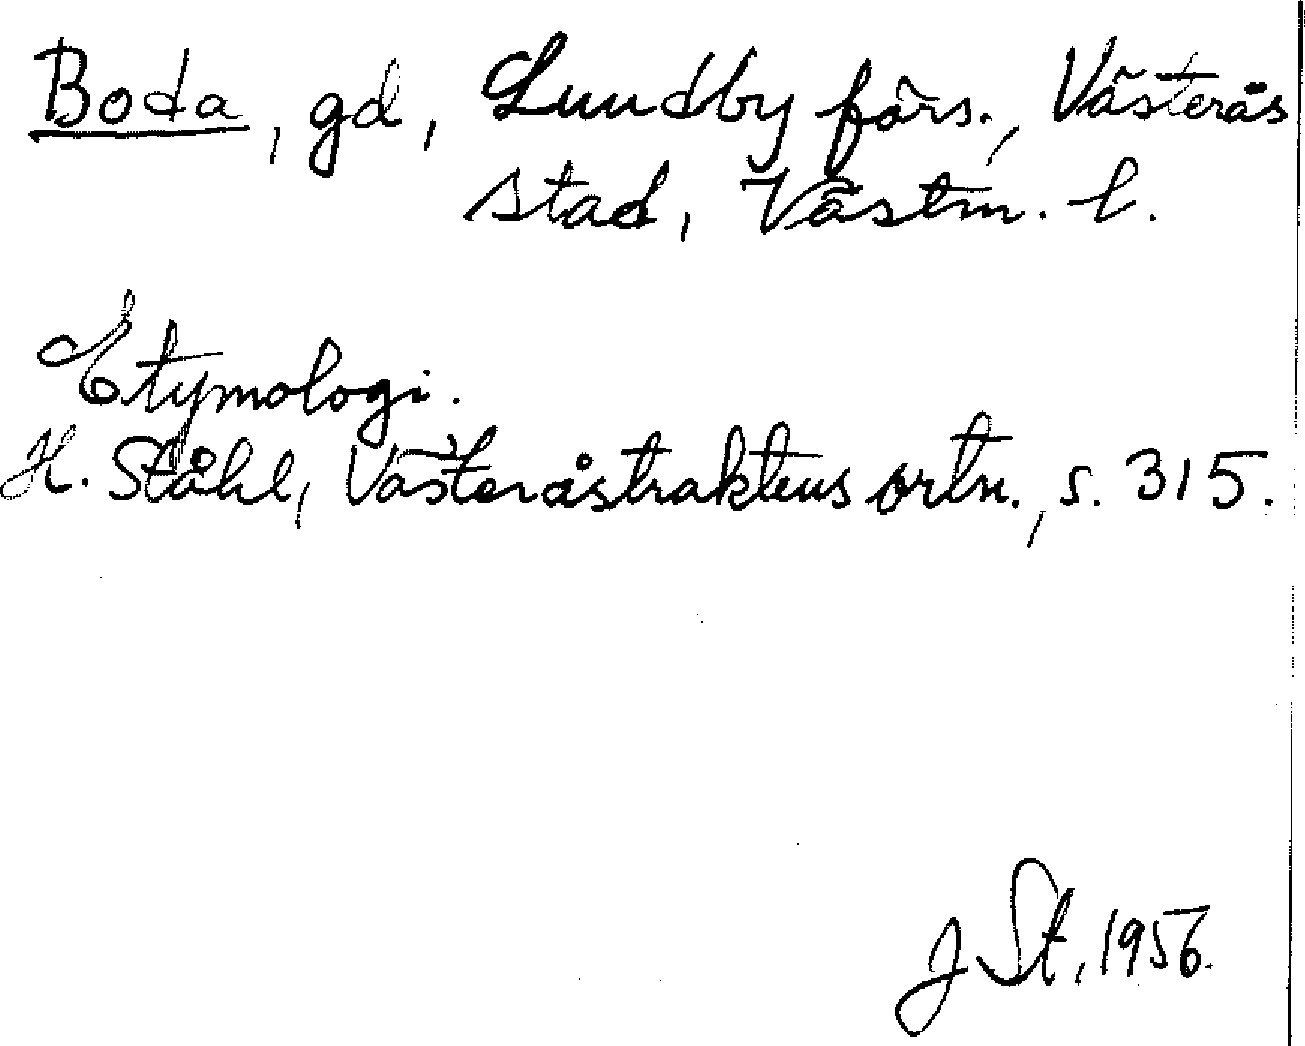 Boda, gd, Lundby förs., Västerås
stad, Västm. l.
Etymologi.
H. Ståhl, Västeråstraktens ortn., s. 315.
J St, 1956.